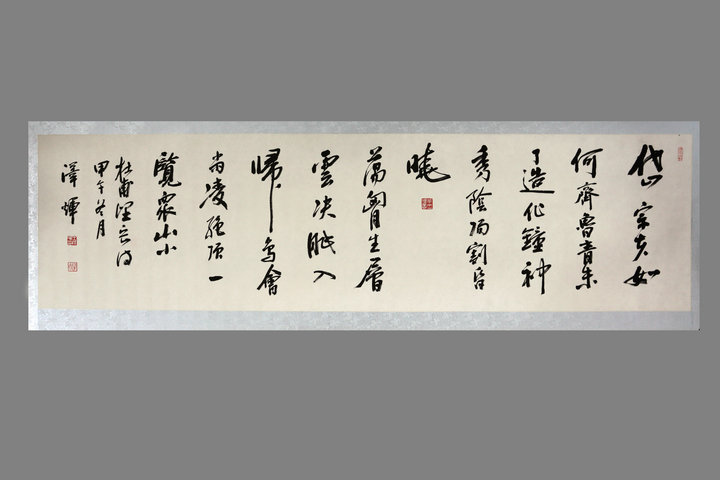 岱宗夫如
何齊魯青未
了造化鐘神
秀陰陽割昏
曉
蕩胷生層
雲決眦入
歸鳥會
當凌絕頂一
覽衆山小
杜甫望岳詩
甲午冬月
澤輝